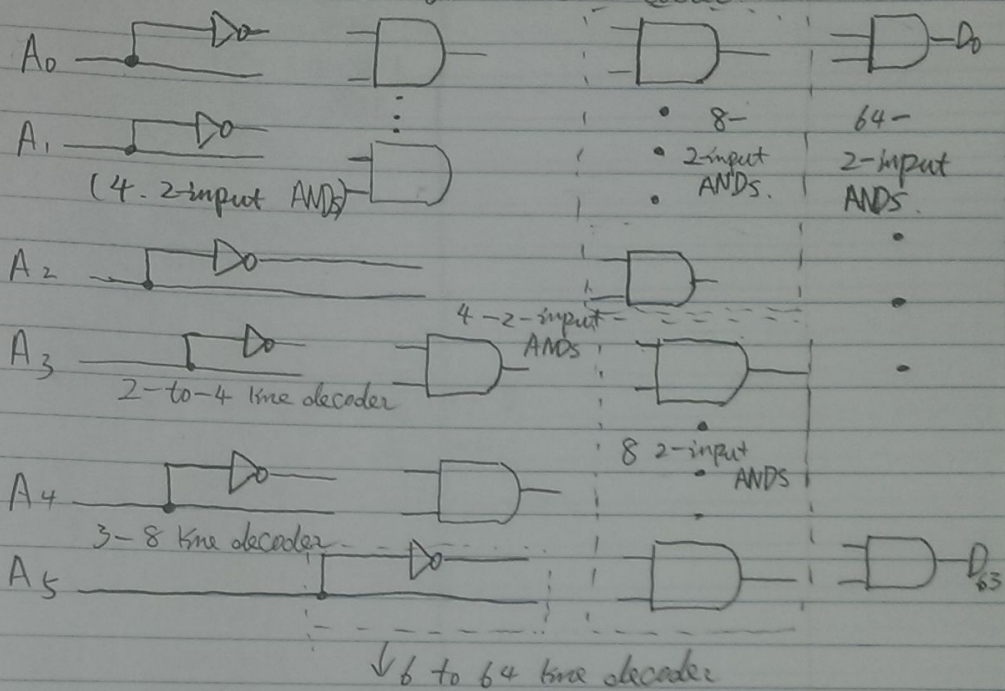 A0
D0
A1
8-
2-input
ANDS.
64-
2-input
ANDS.
(4. 2-input ANDS)
A2
4-2-input
ANDS
A3
2-to-4 line decoder
8 2-input
ANDS
A4
3-8 line decoder
A5
D63
↓6 to 64 line decoder